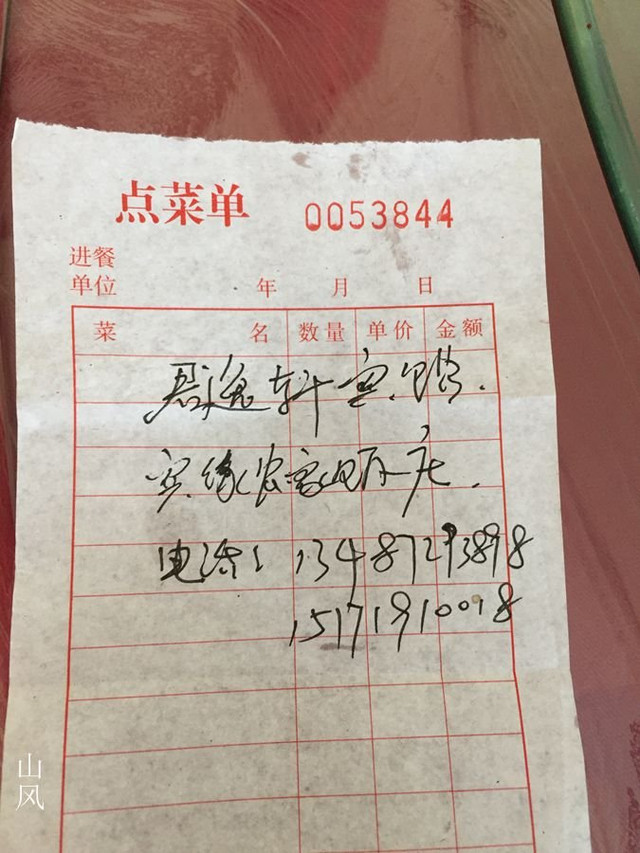 点菜单 0053844
进餐
单位 年 月 日
菜 名 数量 单价 金额
君逸轩宾馆.
宾缘农家饭庄.
电话: 13487293898
15171910018
山风